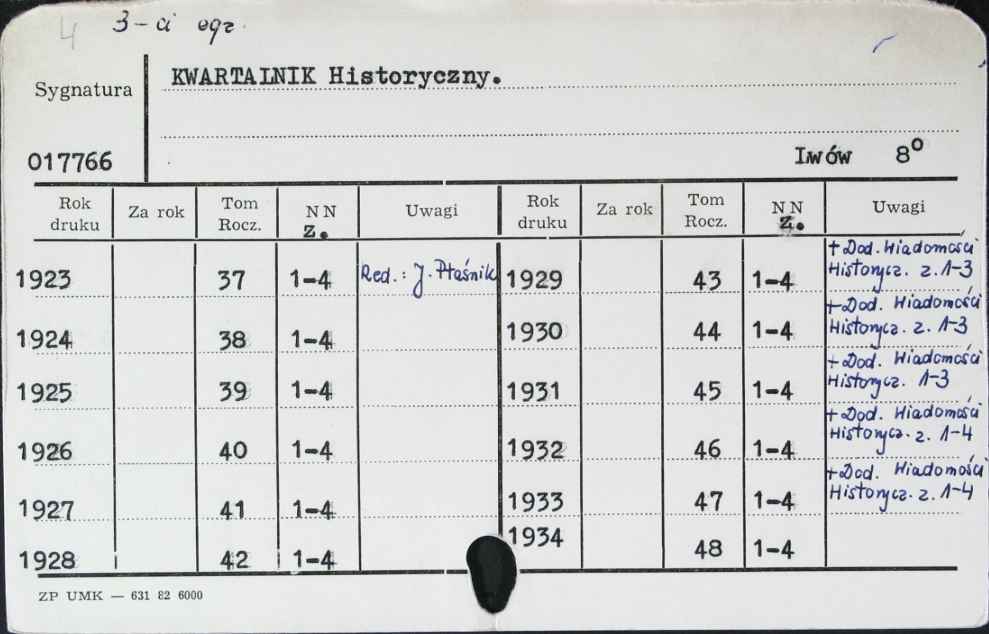 4 3-ci egz.
Sygnatura
KWARTALNIK Historyczny.
017766
Lwów 8°
Rok druku Za rok Tom Rocz. NN z. Uwagi Rok druku Za rok Tom Rocz. NN z. Uwagi
1923 37 1-4 Red.: J. Ptaśnik 1929 43 1-4 + Dod. Wiadomości Historycz. z. 1-3
1924 38 1-4 1930 44 1-4 + Dod. Wiadomości Historycz. z. 1-3
1925 39 1-4 1931 45 1-4 + Dod. Wiadomości Historycz. 1-3
1926 40 1-4 1932 46 1-4 + Dod. Wiadomości Historycz. z. 1-4
1927 41 1-4 1933 47 1-4 + Dod. Wiadomości Historycz. z. 1-4
1928 42 1-4 1934 48 1-4
ZP UMK — 631 82 6000